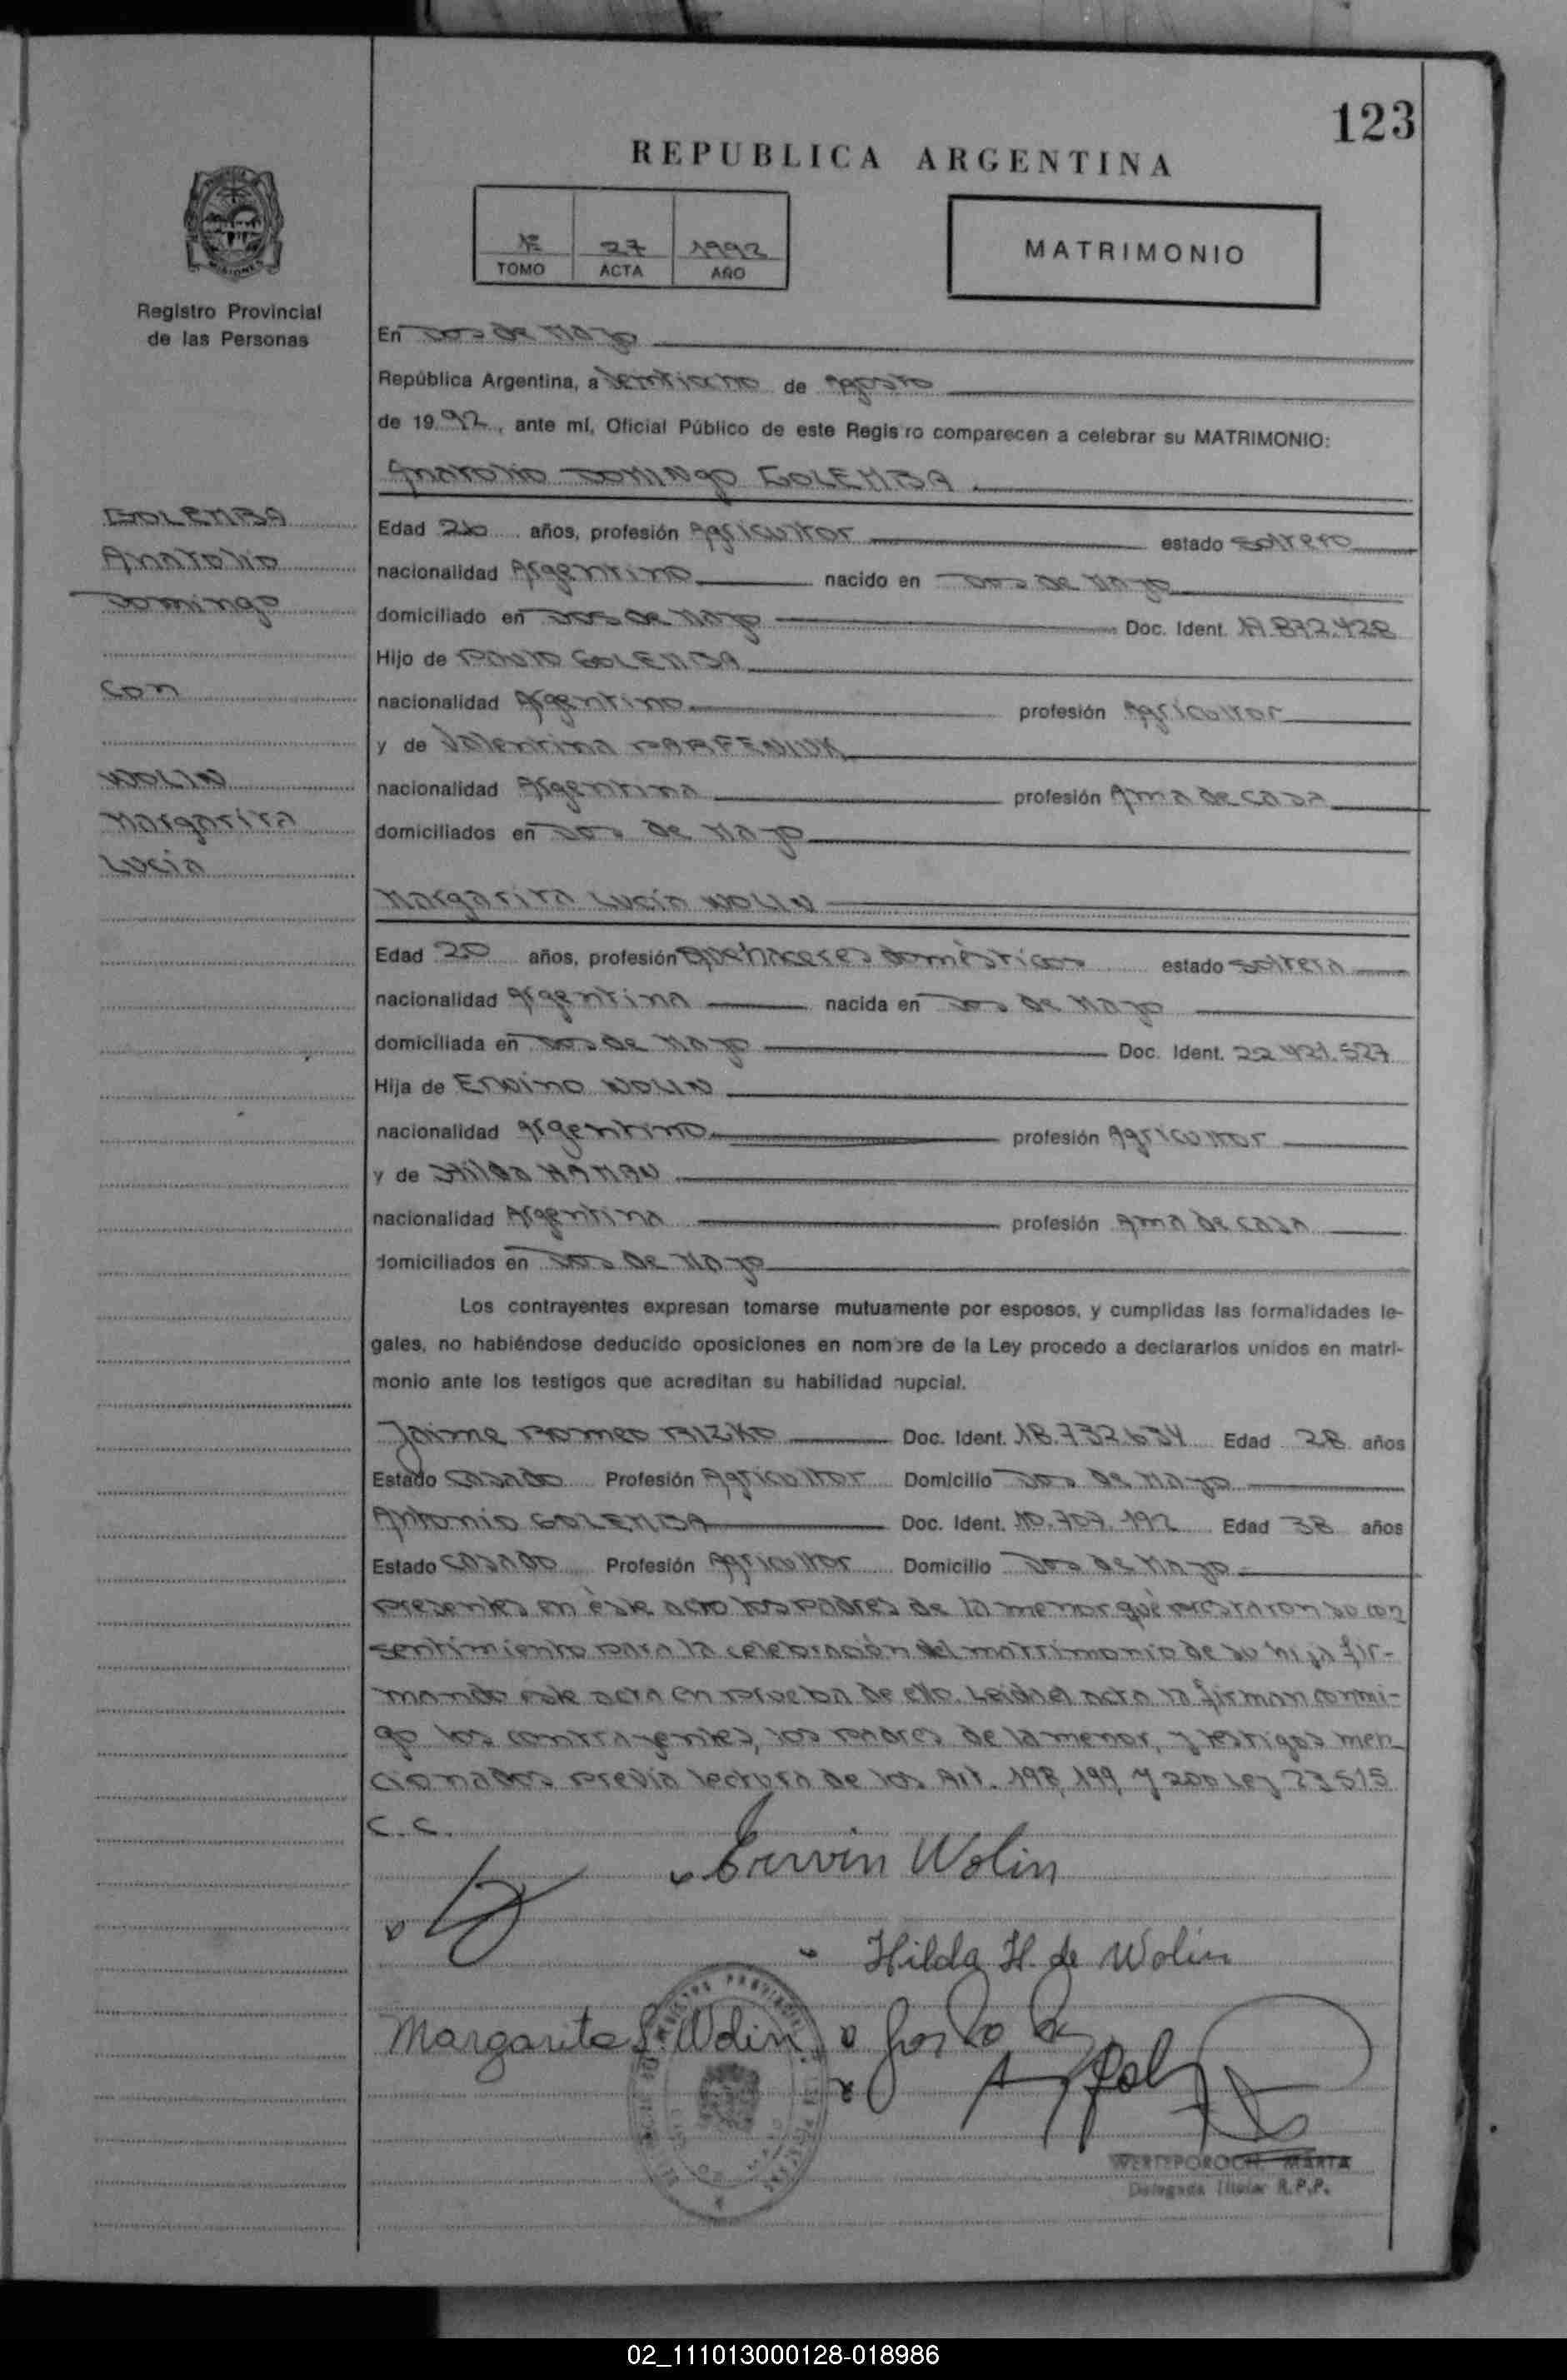 123
REPUBLICA ARGENTINA
Nº 27 1992
TOMO ACTA AÑO
MATRIMONIO
MISIONES
Registro Provincial
de las Personas
En Dos de Mayo
República Argentina, a veintiocho de Agosto
de 1992, ante mí, Oficial Público de este Regis ro comparecen a celebrar su MATRIMONIO:
Anatolio DOMINgo GOLEMBA
GOLEMBA
Anatolio
Domingo
con
WOLIN
Margarita
Lucía
Edad 26 años, profesión Agricultor estado soltero
nacionalidad Argentino nacido en Dos de Mayo
domiciliado en Dos de Mayo Doc. Ident. 17.872.428
Hijo de PAULO GOLEMBA
nacionalidad Argentino profesión Agricultor
y de Valentina PARFENIUK
nacionalidad Argentina profesión Ama de casa
domiciliados en Dos de Mayo
Margarita Lucía WOLIN
Edad 20 años, profesión Quehaceres domésticos estado soltera
nacionalidad Argentina nacida en Dos de Mayo
domiciliada en Dos de Mayo Doc. Ident. 22 421.527
Hija de Ervino WOLIN
nacionalidad Argentino profesión Agricultor
y de Hilda HAMAN
nacionalidad Argentina profesión Ama de casa
domiciliados en Dos de Mayo
Los contrayentes expresan tomarse mutuamente por esposos, y cumplidas las formalidades le-
gales, no habiéndose deducido oposiciones en nombre de la Ley procedo a declararlos unidos en matri-
monio ante los testigos que acreditan su habilidad nupcial.
Jaime Romeo RIZKO Doc. Ident. 18.732.634 Edad 28 años
Estado casado Profesión Agricultor Domicilio Dos de Mayo
Antonio GOLEMBA Doc. Ident. 10.707.192 Edad 38 años
Estado casado Profesión Agricultor Domicilio Dos de Mayo
presentes en éste acto los padres de la menor qué prestaron su con
sentimiento para la celebración del matrimonio de su hija fir-
mando éste acta en prueba de ello. Leída el acta la firman conmi-
go los contrayentes, los padres de la menor, y testigos men
cionados previa lectura de los Art. 198, 199 y 200 Ley 23515
C.C.
Erwin Wolin
Hilda H. de Wolin
Margarita L. Wolin
WERLEPOROCH, MARTA
Delegada Titular R.P.P.
02_111013000128-018986